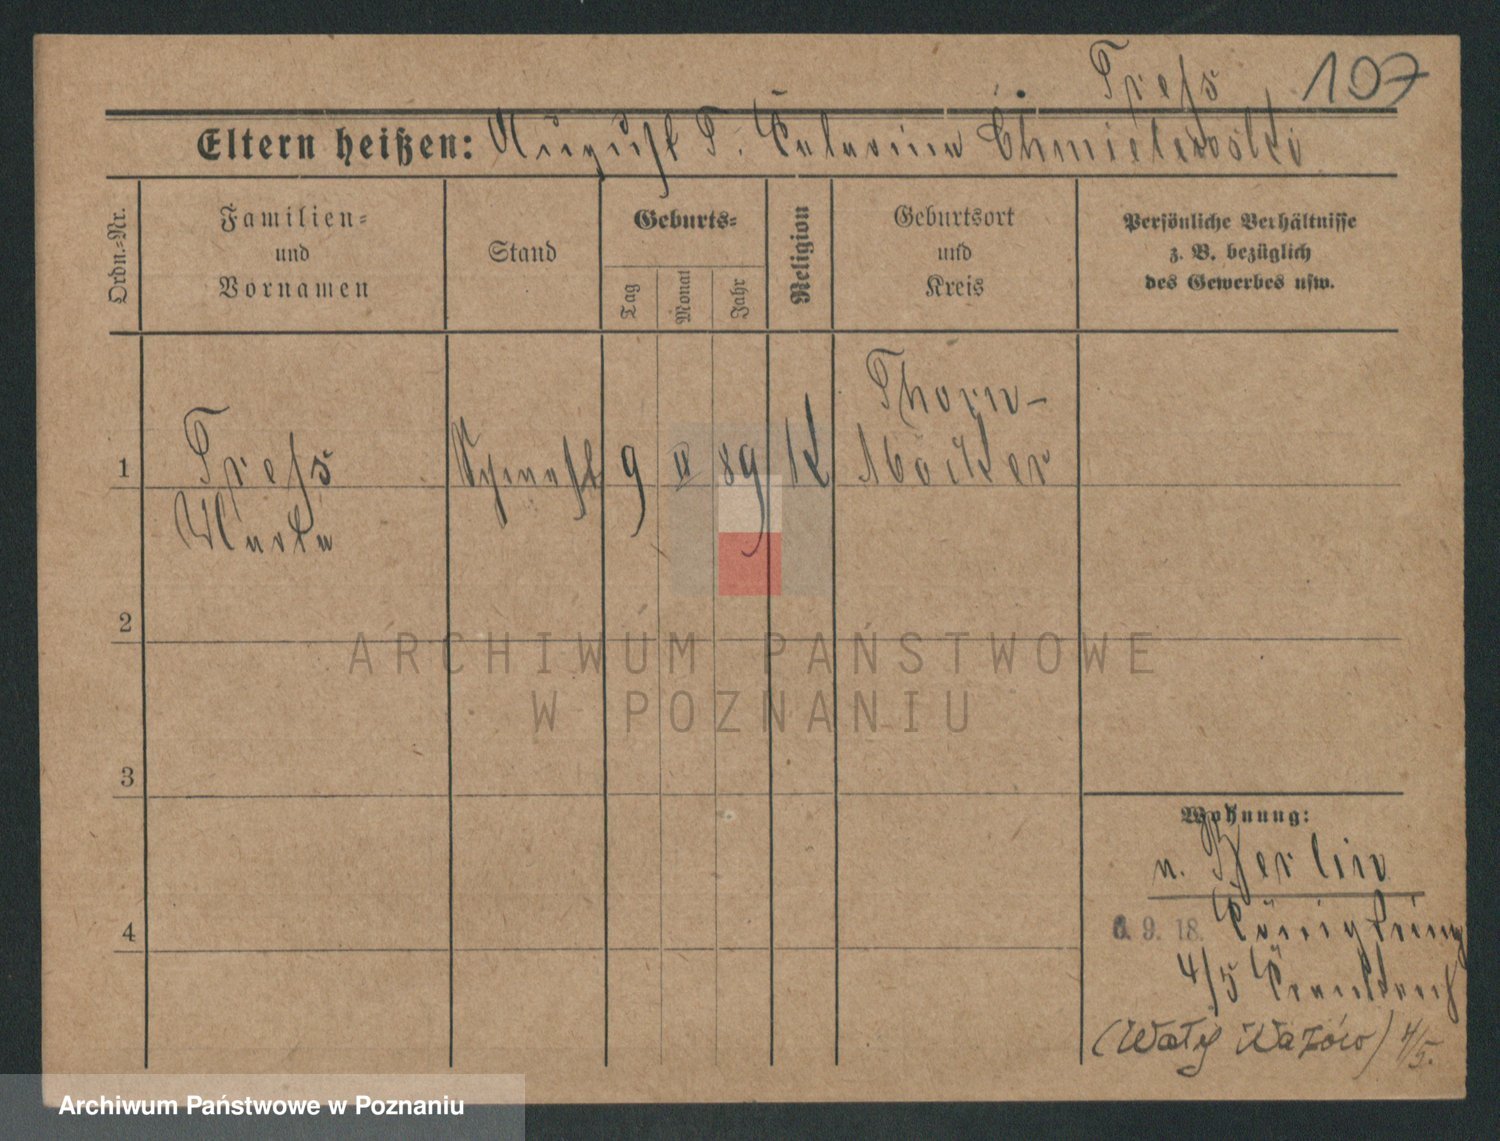 Treß 107
Eltern heißen: August T. Katarina Chmielewska
Ordn.-Nr.
Familien-
und
Vornamen
Stand
Geburts-
Tag
Monat
Jahr
Religion
Geburtsort
und
Kreis
Persönliche Verhältnisse
z. B. bezüglich
des Gewerbes usw.
Thorn-
1 Treß Schwest 9 II 89 K Mocker
Marta
2
ARCHIWUM PAŃSTWOWE
W POZNANIU
3
Wohnung:
n. Berlin
6. 9. 18. Königsring
4
4/5 Krankenh
(Wały Wazów) 4/5.
Archiwum Państwowe w Poznaniu